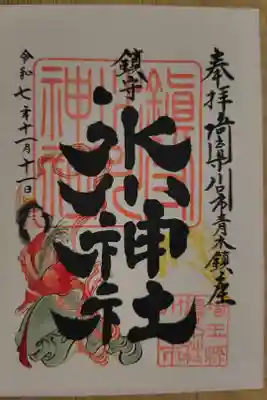 奉拝 埼玉県川口市青木鎮座
鎮守
氷川神社
令和七年十一月十一日
鎮守
氷川
神社